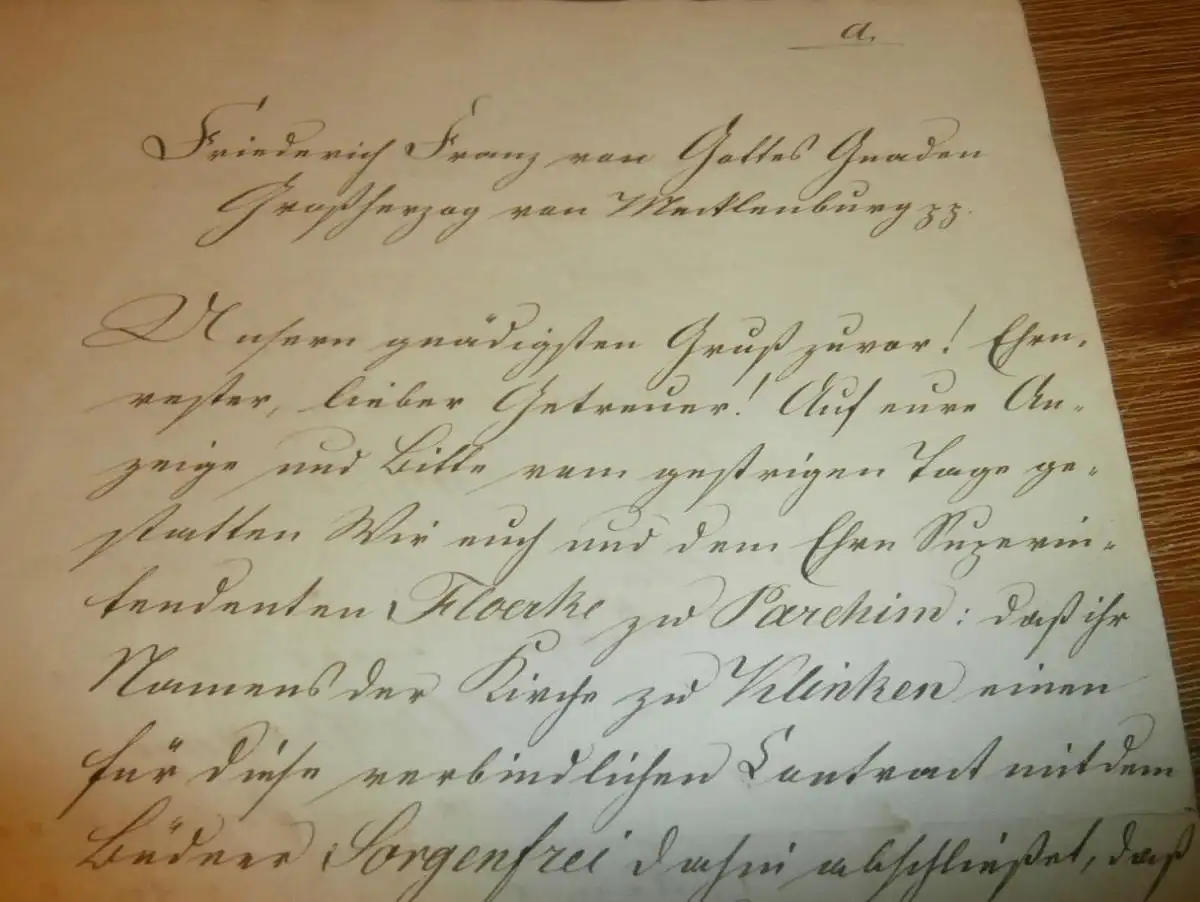 a.
Friederich Franz von Gottes Gnaden
Großherzog von Mecklenburg pp.
Unsern gnädigsten Gruß zuvor! Ehrn-
vester, lieber Getreuer! Auf eure An-
zeige und Bitte vom gestrigen Tage ge-
statten Wir euch und dem Ehrn Superin-
tendenten Floerke zu Parchim: daß ihr
Namens der Kirche zu Klinken einen
für diese verbindlichen Contract mit dem
Büdner Sorgenfrei dahin abschließet, daß